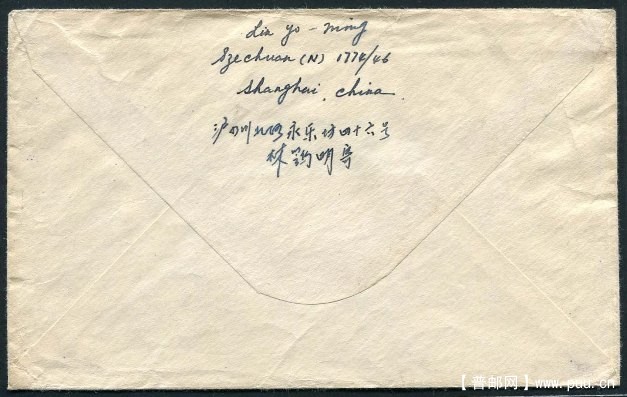 Lin yo - ming
Szechuan (N) 1774/46
Shanghai, China.
沪四川北路永乐坊四十六号
林 明寄
【普邮网】www.puu.cn